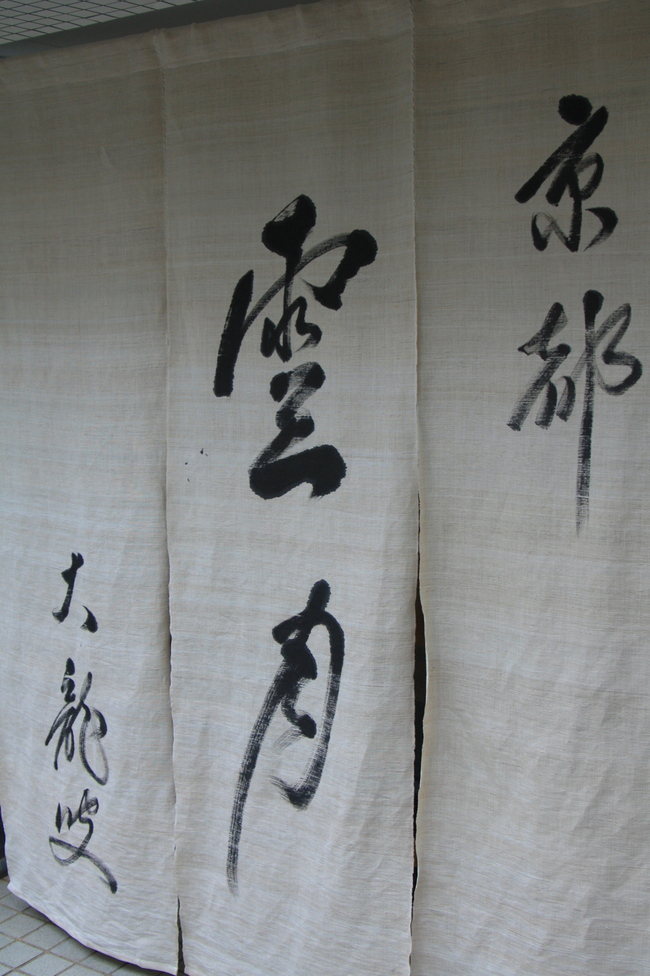 京都
雲月
大龍叟